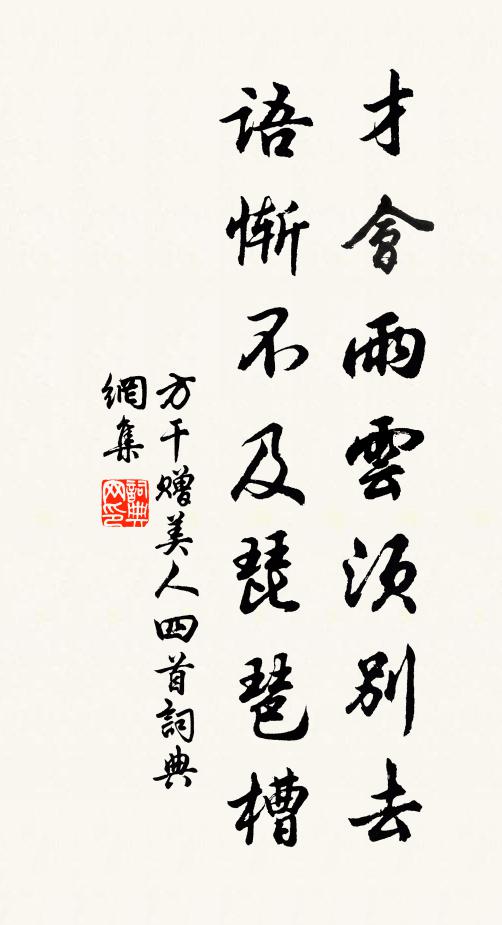 才會雨雲須別去
語慚不及琵琶槽
方干贈美人四首詞典
網集
詞典
网印